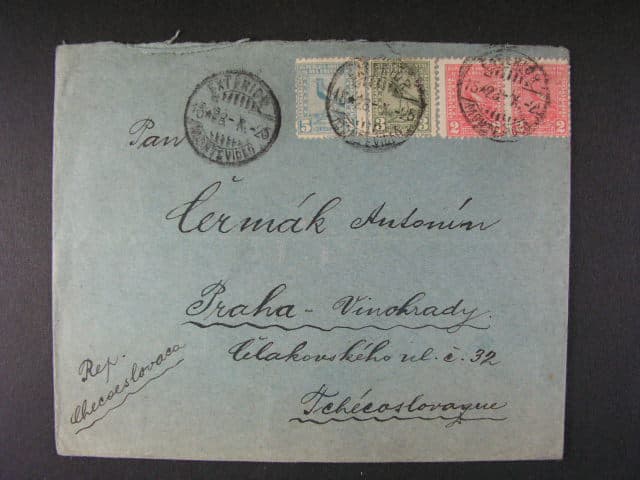 EXTERIOR
MONTEVIDEO
5
3 3
2
2
Pan
Čermák Antonín
Praha - Vinohrady.
Čelakovského ul. č. 32
Tchécoslovaque
Rep.
Checoeslovaca